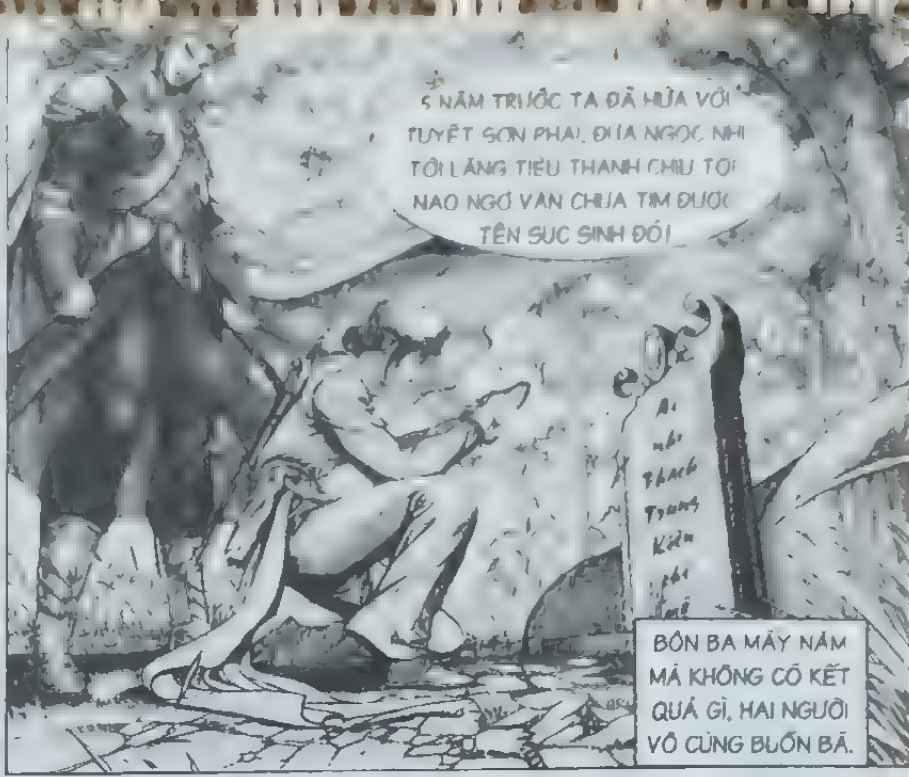 5 NĂM TRƯỚC TA ĐÃ HỨA VỚI
TUYẾT SƠN PHÁI, ĐƯA NGỌC NHI
TỚI LĂNG TIÊU THÀNH CHỊU TỘI
NÀO NGỜ VẪN CHƯA TÌM ĐƯỢC
TÊN SÚC SINH ĐÓ!
Ai
nhi
Thạch
Trung
Kiên
chi
mộ
BÔN BA MẤY NĂM
MÀ KHÔNG CÓ KẾT
QUẢ GÌ, HAI NGƯỜI
VÔ CÙNG BUỒN BÃ.